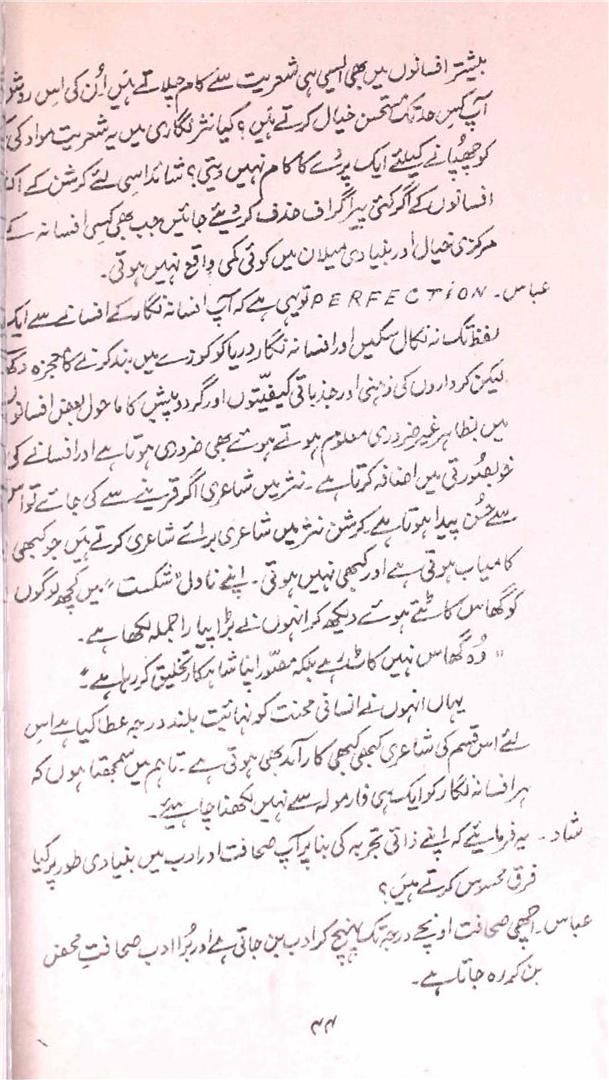 بیشتر افسانوں میں بھی ایسی ہی شعریت سے کام چلاتے ہیں اُن کی اس روش
آپ کس حد تک مستحسن خیال کرتے ہیں؟ کیا نثر نگاری میں یہ شعریت مواد کی
کو چھپانے کیلئے ایک پردے کا کام نہیں دیتی؟ شائد اسی لئے کرشن کے
افسانوں کے اگر کئی پیراگراف حذف کر دیئے جائیں جب بھی کسی افسانہ کے
مرکزی خیال اور بنیادی میلان میں کوئی کمی واقع نہیں ہوتی۔
عباس۔ PERFECTION تو یہی ہے کہ آپ افسانہ نگار کے افسانے سے ایک
لفظ تک نہ نکال سکیں اور افسانہ نگار دریا کو کوزے میں بند کرنے کا معجزہ
لیکن کرداروں کی ذہنی اور جذباتی کیفیّتوں اور گرد و پیش کا ماحول بعض افسانوں
میں بظاہر غیر ضروری معلوم ہوتے ہوئے بھی ضروری ہوتا ہے اور افسانے کی
خوبصُورتی میں اضافہ کرتا ہے۔ نثر میں شاعری اگر قرینے سے کی جائے تو اس
سے حُسن پیدا ہوتا ہے۔ کرشن نثر میں شاعری برائے شاعری کرتے ہیں جو کبھی
کامیاب ہوتی ہے اور کبھی نہیں ہوتی۔ اپنے ناول "شکست" میں کچھ لوگوں
کو گھاس کاٹتے ہوئے دیکھ کر انہوں نے بڑا پیارا جملہ لکھا ہے۔
"وُہ گھاس نہیں کاٹ رہے بلکہ مصّور اپنا شاہکار تخلیق کر رہا ہے۔"
یہاں انہوں نے انسانی محنت کو نہائیت بلند درجہ عطا کیا ہے اس
لئے اس قسم کی شاعری کبھی کبھی کارآمد بھی ہوتی ہے۔ تاہم میں سمجھتا ہوں کہ
ہر افسانہ نگار کو ایک ہی فارمولہ سے نہیں لکھنا چاہیئے۔
شاد۔ یہ فرمایئے کہ اپنے ذاتی تجربہ کی بنا پر آپ صحافت اور ادب میں بنیادی طور پر کیا
فرق محسوس کرتے ہیں؟
عباس۔ اچھی صحافت اونچے درجہ تک پہنچ کر ادب بن جاتی ہے اور بُرا ادب صحافتِ محض
بن کر رہ جاتا ہے۔
۴۴